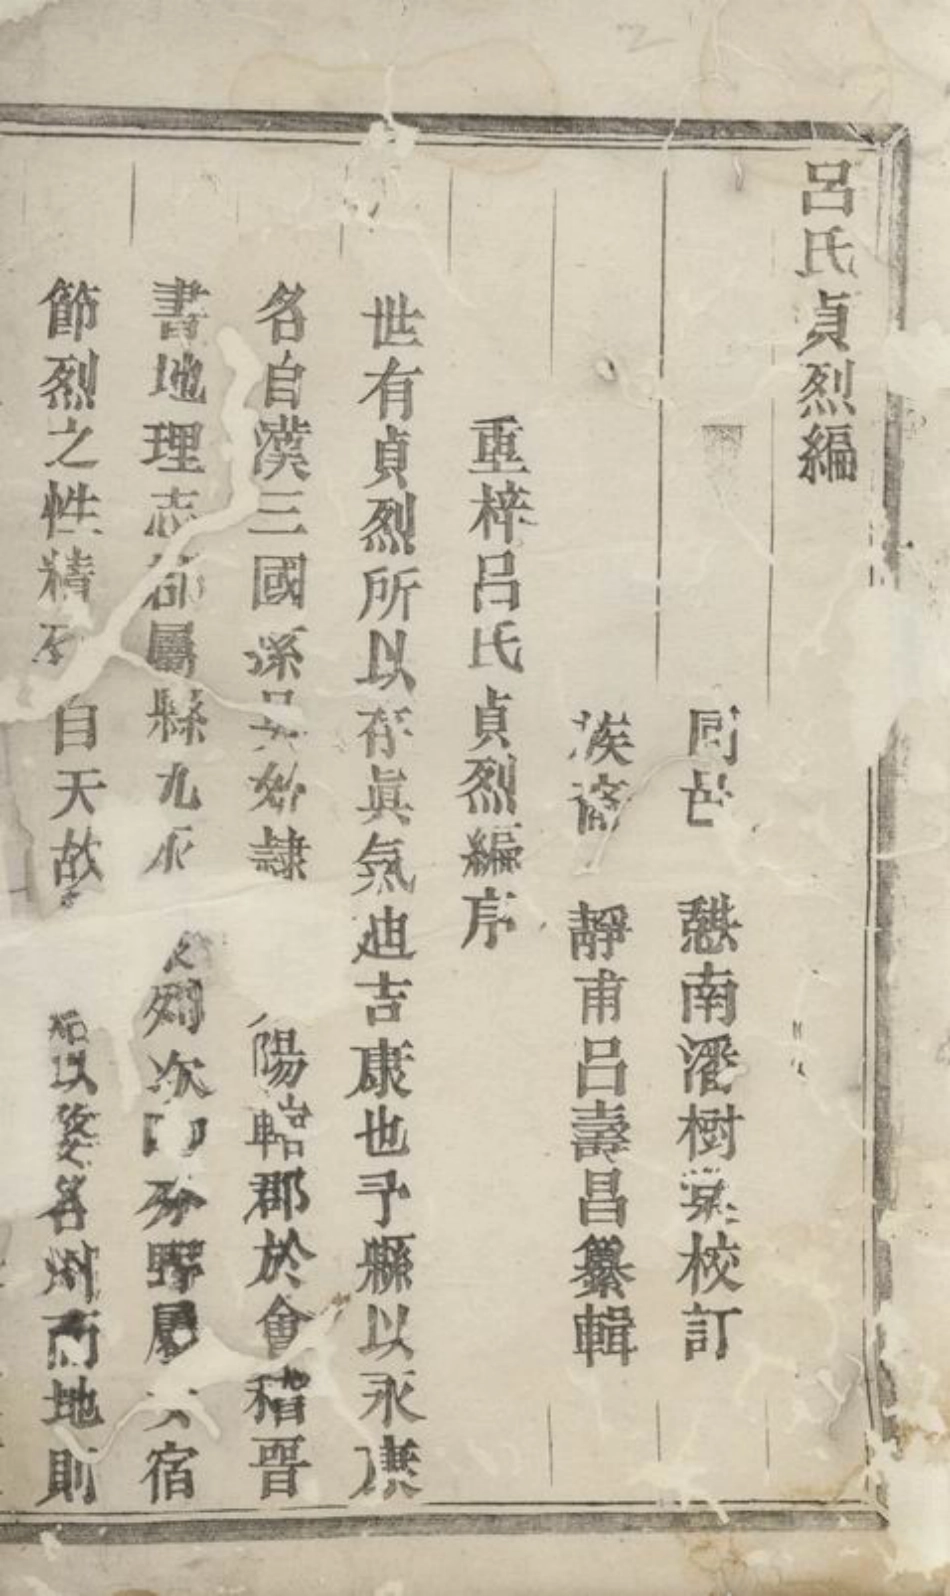 呂氏貞烈編
同邑 懋南潘樹棠校訂
族裔 靜甫呂壽昌纂輯
重梓呂氏貞烈編序
世有貞烈所以存眞氣迪吉康也予縣以永康
名自漢三國孫吳始隸 陽郡於會稽晋
書地理志郡屬縣九永 列次 分野屬女宿
節烈之性精 自天故 以婺名州而地則